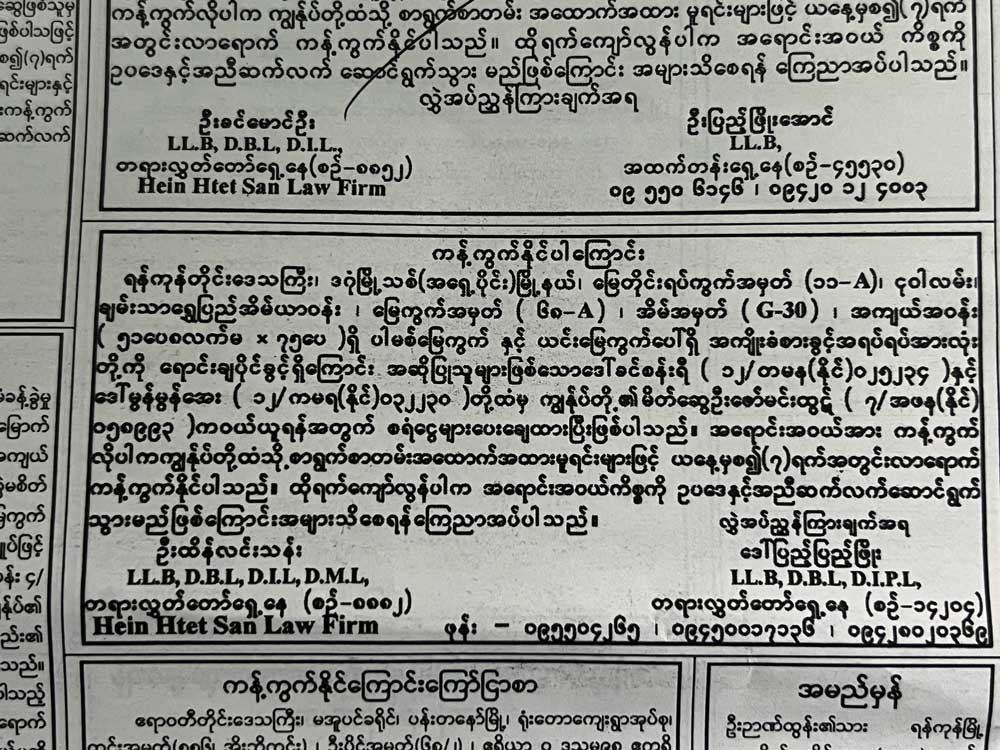 ကန့်ကွက်လိုပါက ကျွန်ုပ်တို့ထံသို့ စာရွက်စာတမ်း အထောက်အထား မူရင်းများဖြင့် ယနေ့မှစ၍(၇)ရက်
အတွင်းလာရောက် ကန့်ကွက်နိုင်ပါသည်။ ထိုရက်ကျော်လွန်ပါက အရောင်းအဝယ် ကိစ္စကို
ဥပဒေနှင့်အညီဆက်လက် ဆောင်ရွက်သွား မည်ဖြစ်ကြောင်း အများသိစေရန် ကြေညာအပ်ပါသည်။
လွှဲအပ်ညွှန်ကြားချက်အရ
ဦးခင်မောင်ဦး
LL.B, D.B.L, D.I.L.,
တရားလွှတ်တော်ရှေ့နေ(စဉ်-၈၈၅၂)
Hein Htet San Law Firm
ဦးပြည့်ဖြိုးအောင်
LL.B,
အထက်တန်းရှေ့နေ(စဉ်-၄၅၅၃၀)
၀၉ ၅၅၀ ၆၁၄၆ ၊ ၀၉၄၂၀ ၁၂ ၄၀၀၃
ဆွေဖြစ်သူမှ
ဖြစ်ပါသဖြင့်
စ၍(၇)ရက်
ရင်းများနှင့်
းကန့်ကွက်
ဆက်လက်
ကန့်ကွက်နိုင်ပါကြောင်း
ရန်ကုန်တိုင်းဒေသကြီး၊ ဒဂုံမြို့သစ်(အရှေ့ပိုင်း)မြို့နယ်၊ မြေတိုင်းရပ်ကွက်အမှတ် (၁၁-A)၊ ငုဝါလမ်း၊
ချမ်းသာရွှေပြည်အိမ်ယာဝန်း ၊ မြေကွက်အမှတ် ( ၆၈-A) ၊ အိမ်အမှတ် ( G-30) ၊ အကျယ်အဝန်း
( ၅၁ပေ၈လက်မ × ၇၅ပေ )ရှိ ပါမစ်မြေကွက် နှင့် ယင်းမြေကွက်ပေါ်ရှိ အကျိုးခံစားခွင့်အရပ်ရပ်အားလုံး
တို့ကို ရောင်းချပိုင်ခွင့်ရှိကြောင်း အဆိုပြုသူများဖြစ်သောဒေါ်ခင်စန်းရီ ( ၁၂/တမန(နိုင်)၀၂၅၂၃၄ )နှင့်
ဒေါ်မွန်မွန်အေး ( ၁၂/ကမရ(နိုင်)၀၃၂၂၃၀ )တို့ထံမှ ကျွန်ုပ်တို့၏မိတ်ဆွေဦးဇော်မင်းထွဋ် ( ၇/အဖန(နိုင်)
၀၅၈၉၉၃ )ကဝယ်ယူရန်အတွက် စရံငွေများပေးချေထားပြီးဖြစ်ပါသည်။ အရောင်းအဝယ်အား ကန့်ကွက်
လိုပါကကျွန်ုပ်တို့ထံသို့စာရွက်စာတမ်းအထောက်အထားမူရင်းများဖြင့် ယနေ့မှစ၍(၇)ရက်အတွင်းလာရောက်
ကန့်ကွက်နိုင်ပါသည်။ ထိုရက်ကျော်လွန်ပါက အရောင်းအဝယ်ကိစ္စကို ဥပဒေနှင့်အညီဆက်လက်ဆောင်ရွက်
သွားမည်ဖြစ်ကြောင်းအများသိစေရန်ကြေညာအပ်ပါသည်။
လွှဲအပ်ညွှန်ကြားချက်အရ
ဦးထိန်လင်းသန်း
LL.B, D.B.L, D.I.L, D.M.L,
တရားလွှတ်တော်ရှေ့နေ (စဉ်-၈၈၈၂)
Hein Htet San Law Firm
ဒေါ်ပြည့်ပြည့်ဖြိုး
LL.B, D.B.L, D.I.P.L,
တရားလွှတ်တော်ရှေ့နေ (စဉ်-၁၄၂၀၄)
ဖုန်း - ၀၉၅၅၀၄၂၆၅ ၊ ၀၉၄၅၀၀၁၇၁၃၆ ၊ ၀၉၄၂၈၀၂၀၃၆၉
ခန့်ခွဲမှု
မြောက်
အကျယ်
မှစိတ်
မြေကွက်
ျုပ်ဖြင့်
န်း ၄/
န်ုပ်၏
ည်း၏
သည်။
ပါသည့်
ရောက်
ကန့်ကွက်နိုင်ကြောင်းကြော်ငြာစာ
ဧရာဝတီတိုင်းဒေသကြီး၊ မအူပင်ခရိုင်၊ ပန်းတနော်မြို့၊ ရုံးတောကျေးရွာအုပ်စု၊
အမည်မှန်
ဦးဉာဏ်ထွန်း၏သား ရန်ကုန်မြို့၊